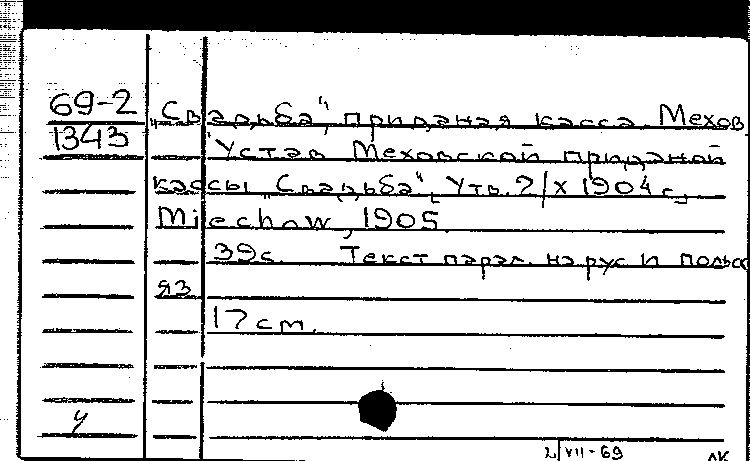 69-2
1343
„Свадьба", приданая касса. Мехов
Устав Меховской приданой
кассы „Свадьба", Утв. 2/X 1904 г.
Miechow, 1905.
39с. Текст парал. на рус. и польс
яз
17 cm.
У
2/VII-69
ЛК